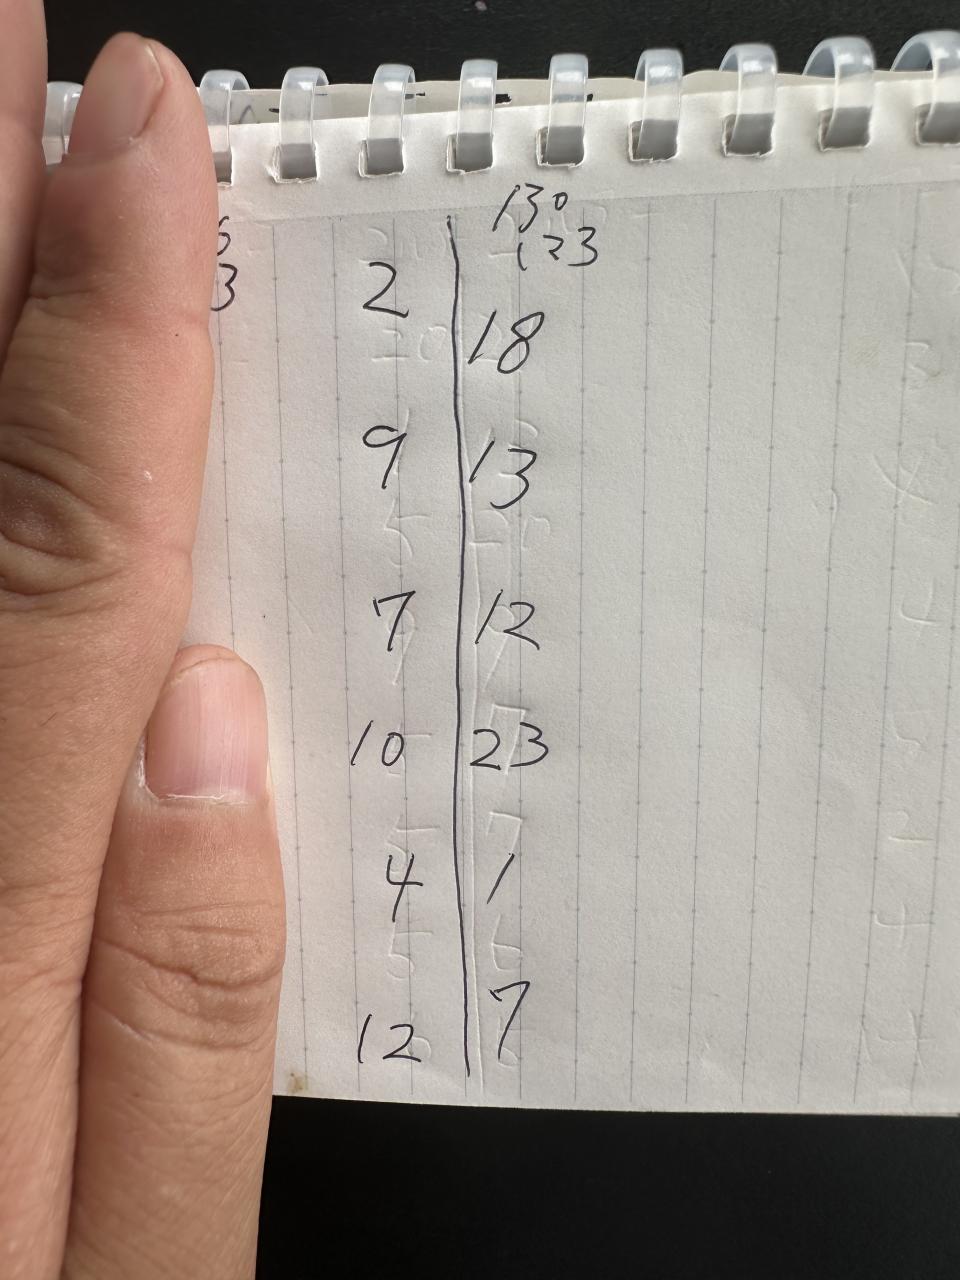 130
123
2 18
9 13
7 12
10 23
4 1
12 7